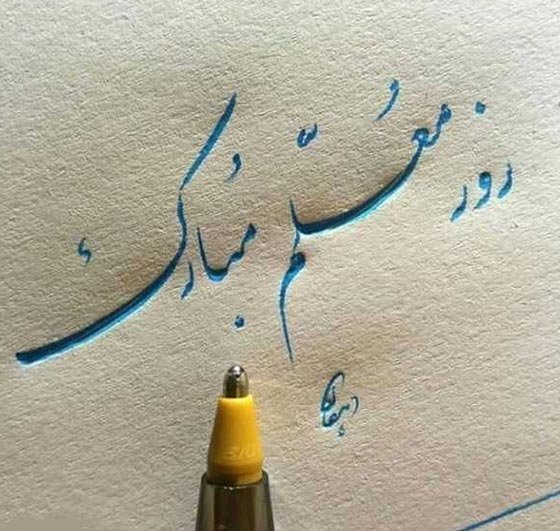 روز معُلّم مُبارک